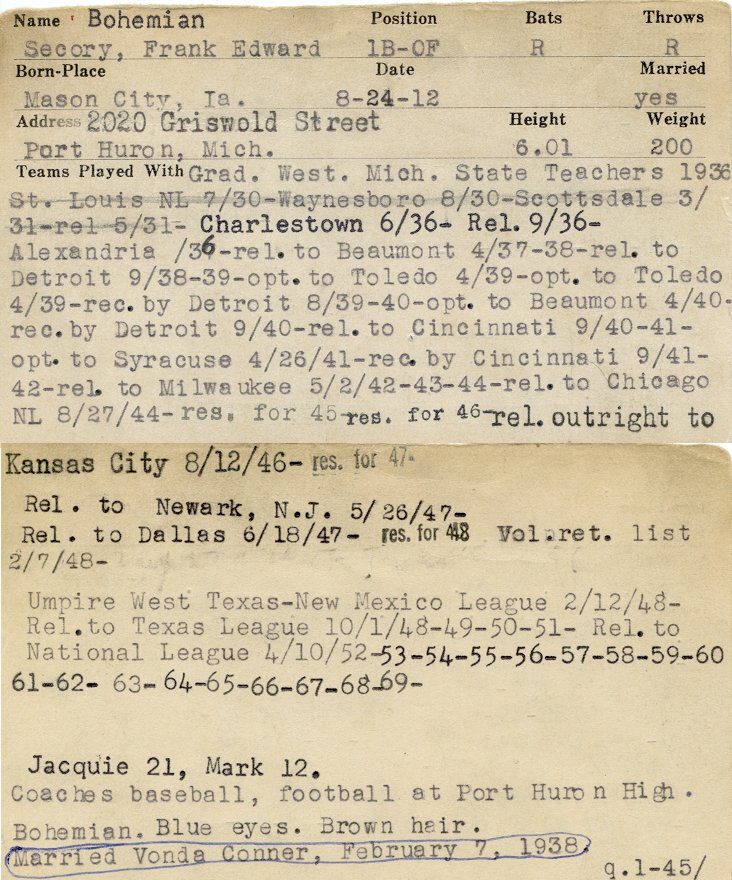 Name Bohemian Position Bats Throws
Secory, Frank Edward 1B-OF R R
Born-Place Date Married
Mason City, Ia. 8-24-12 yes
Address 2020 Griswold Street Height Weight
Port Huron, Mich. 6.01 200
Teams Played With Grad. West. Mich. State Teachers 1936
St. Louis NL 7/30-Waynesboro 8/30-Scottsdale 3/
31-rel 5/31- Charlestown 6/36- Rel. 9/36-
Alexandria /36-rel. to Beaumont 4/37-38-rel. to
Detroit 9/38-39-opt. to Toledo 4/39-opt. to Toledo
4/39-rec. by Detroit 8/39-40-opt. to Beaumont 4/40-
rec. by Detroit 9/40-rel. to Cincinnati 9/40-41-
opt. to Syracuse 4/26/41-rec. by Cincinnati 9/41-
42-rel. to Milwaukee 5/2/42-43-44-rel. to Chicago
NL 8/27/44-res. for 45-res. for 46-rel. outright to
Kansas City 8/12/46- res. for 47-
Rel. to Newark, N.J. 5/26/47-
Rel. to Dallas 6/18/47- res. for 48 Vol. ret. list
2/7/48-
Umpire West Texas-New Mexico League 2/12/48-
Rel. to Texas League 10/1/48-49-50-51- Rel. to
National League 4/10/52-53-54-55-56-57-58-59-60
61-62- 63- 64-65-66-67-68-69-
Jacquie 21, Mark 12.
Coaches baseball, football at Port Huron High.
Bohemian. Blue eyes. Brown hair.
Married Vonda Conner, February 7, 1938.
q.1-45/